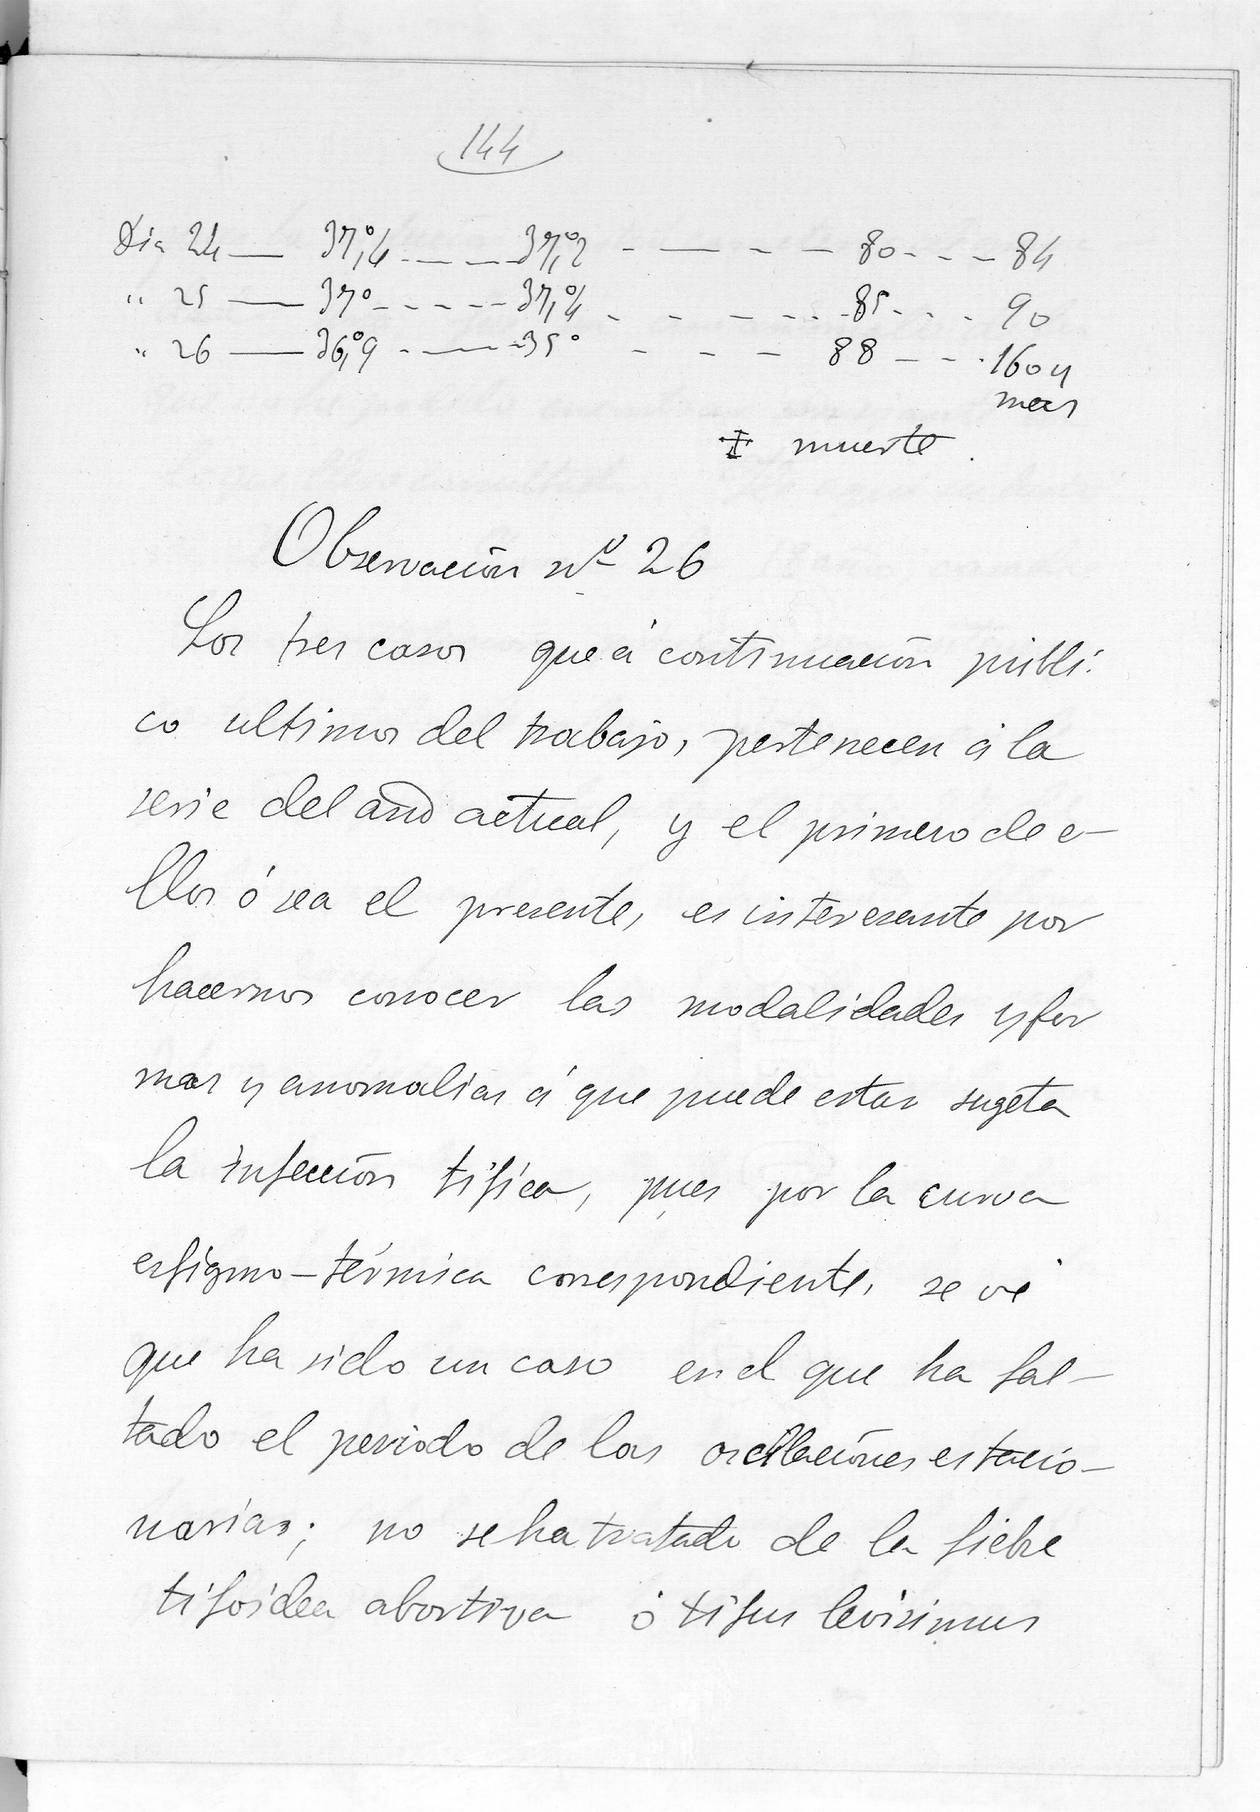 144
Dia 24 — 37,º4 - - - - 37,º2 - — - - 80 - - - 84
" 25 — 37º - - - - - 37,º4 - - - - - 85 - - - 90
" 26 — 36,º9 - - — - 35º - - - 88 — - - 160 y
mas
‡ muerte.
Observación nº 26
Los tres casos que á continuación publi-
co ultimos del trabajo, pertenecen á la
serie del año actual, y el primero de e-
llos ó sea el presente, es interesante por
hacernos conocer las modalidades y for
mas y anomalias á que puede estar sugeta
la infección tifica, pues por la curva
esfigmo-térmica correspondiente, se vé
que ha sido un caso en el que ha fal-
tado el periodo de las oscilaciones estacio-
narias; no se ha tratado de la fiebre
tifoidea abortiva ó tifus levisimus